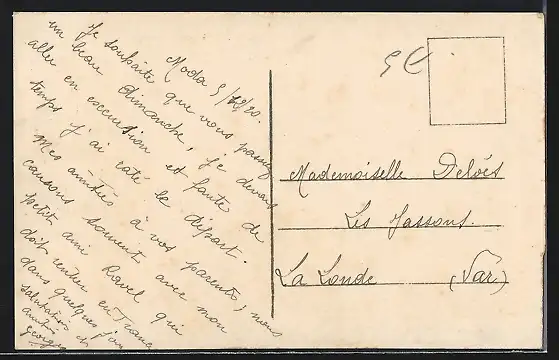 Moda 5/12/20.
Je souhaite que vous passiez
un beau dimanche, je devais
aller en excurstion et faute de
temps j'ai raté le départ.
Mes amitiés à vos parents, nous
causons souvent avec mon
petit ami Ravel qui
doit rentrer en France
dans quelques jours
salutation et
amitiés
Georges
5 C
Mademoiselle Deloés
Les Jassons.
La Londe (Var)